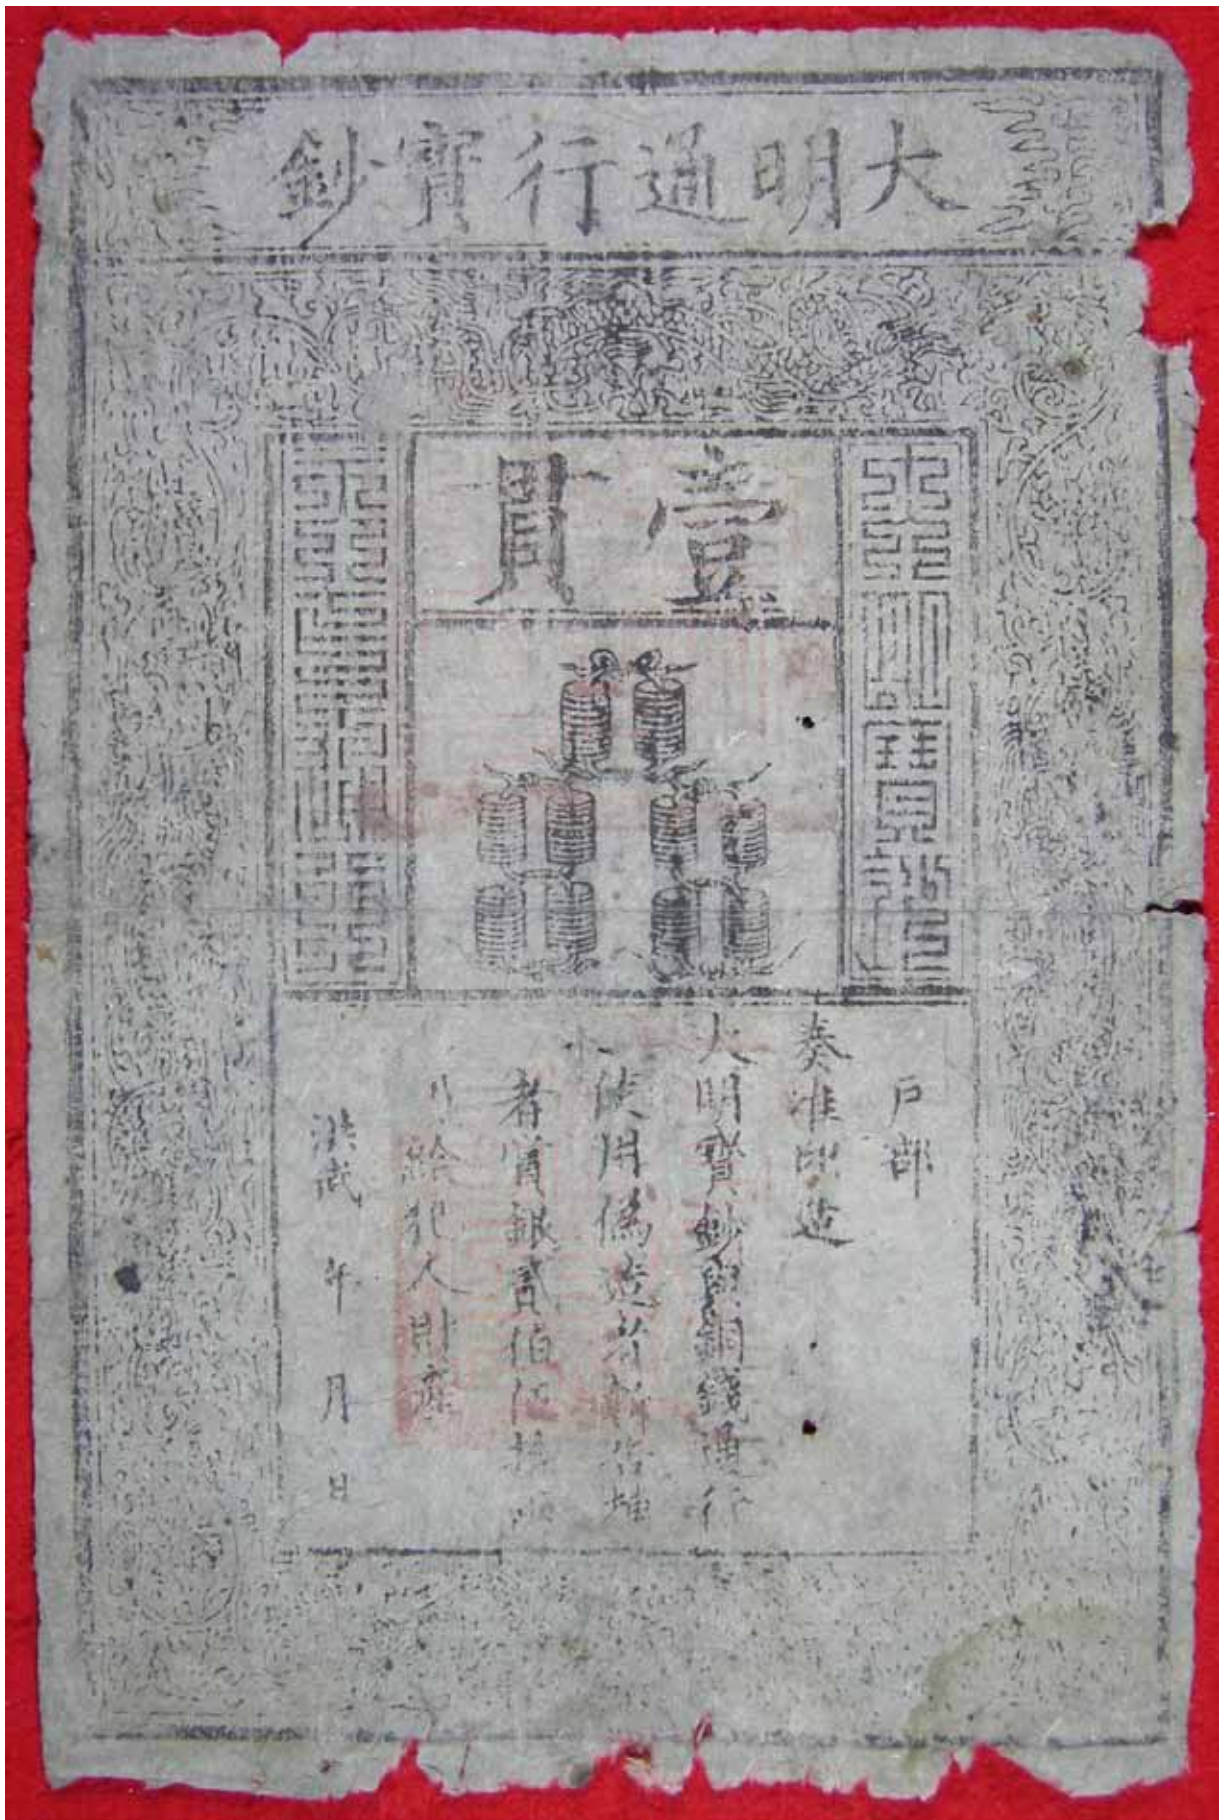 大明通行寶鈔
壹貫
大明寶鈔
天下通行
户部
奏准印造
大明寶鈔與銅錢通行
使用偽造者斬告捕
者賞銀貳伯伍拾兩
給犯人財產
洪武 年 月 日